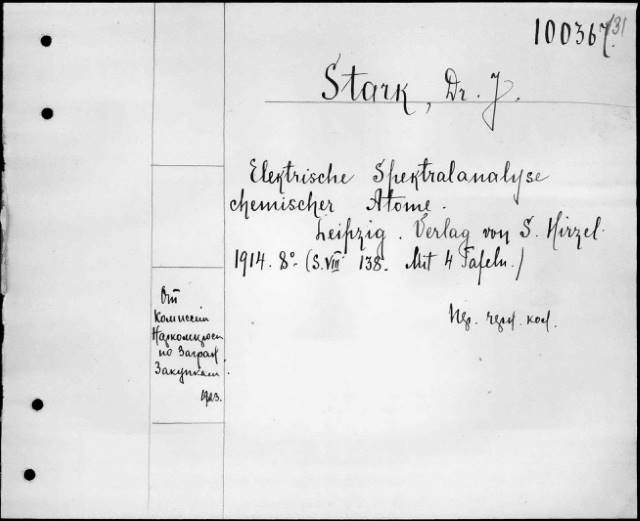 100367/31
Stark, Dr. J.
Elektrische Spektralanalyse
chemischer Atome.
Leipzig. Verlag von S. Hirzel.
1914. 8° (S. VIII 138. Mit 4 Tafeln.)
От
Комиссии
по Заграл
Закупкам
1923.